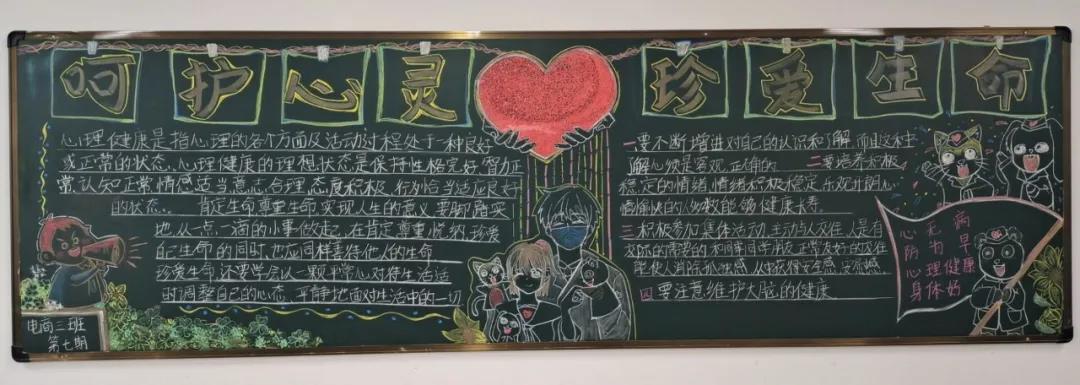 呵护心灵 珍爱生命
心理健康是指心理的各个方面及活动过程处于一种良好
或正常的状态.心理健康的理想状态是保持性格完好,智力正
常,认知正常,情感适当,意志合理,态度积极,行为恰当,适应良好
的状态... 肯定生命尊重生命,实现人生的意义,要脚踏实
地,从一点一滴的小事做起,在肯定尊重悦纳珍爱
自己生命的同时,也应同样善待他人的生命
珍爱生命,还要学会以一颗平常心对待生活适
时调整自己的心态,平静地面对生活中的一切
一要不断增进对自己的认识和了解而且这种
了解必须是客观,正确的 二要培养积极
稳定的情绪,情绪积极稳定,乐观开朗,心
情愉快的人多数能够健康长寿.
三积极参加集体活动,主动与人交往,人是有
交际的需要的,和同事同学朋友正常友好的交往
能使人消除孤独感,从中获得安全感,安慰感
四要注意维护大脑的健康
心无病
防为早
心理健康
身体好
电商三班
第七期